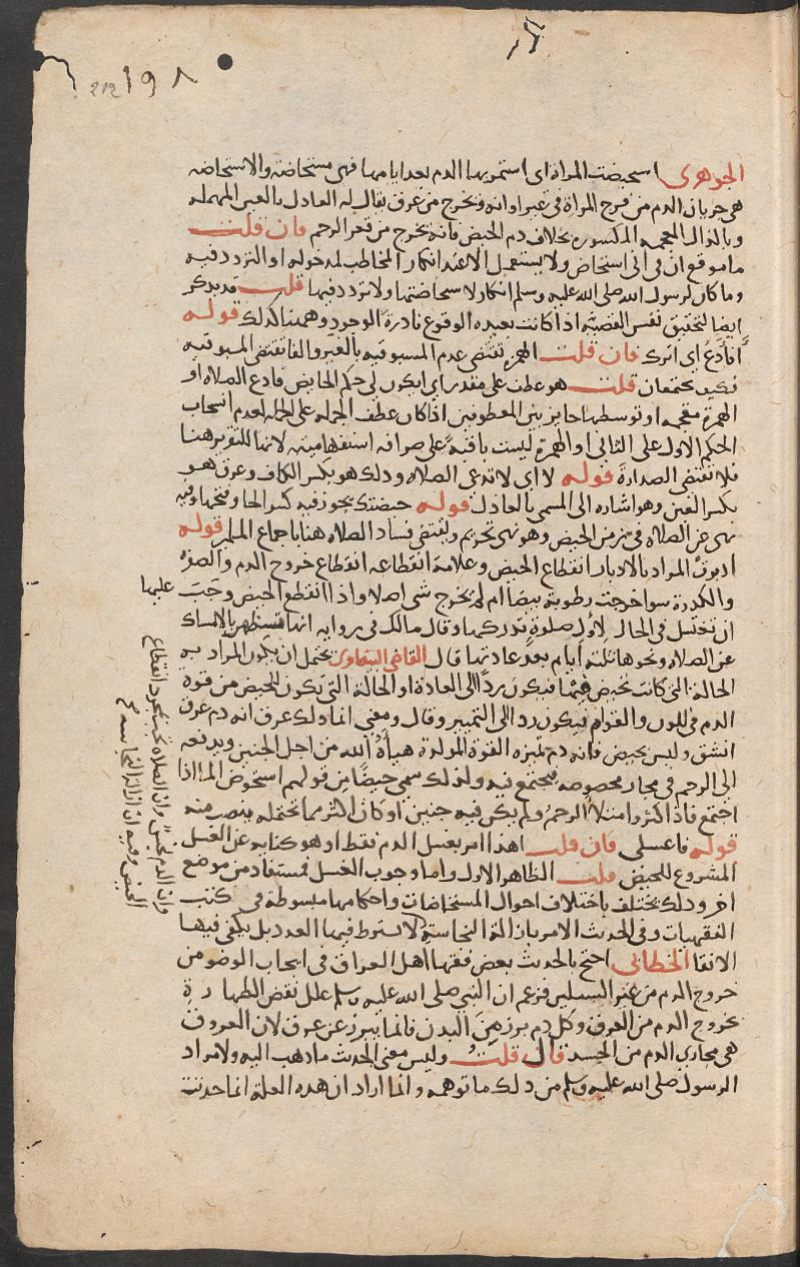 ١٩٨
212
الجوهري استحيضت المراة اى استمر بها الدم بعد ايامها فهى مستحاضة والاستحاضه
هى جريان الدم من فرج المراة فى غير اوانه ويخرج من عرق يقال له العادل بالعين المهمله
وبالذال المعجمه المكسوره بخلاف دم الحيض فانه يخرج من قعر الرحم فان قلت
ما موقع ان فى انى استحاض ولا يستعمل الا عند انكار المخاطب لمدخوله او التردد فيه
وما كان لرسول الله صلى الله عليه وسلم انكار لاستحاضتها ولا تردد فيها قلت قد يذكر
ايضا لتحقيق نفس القضيه اذا كانت بعيده الوقوع نادرة الوجود وههنا كذلك قوله
أفأدعُ اى اترك فان قلت الهمزة تقتضى عدم المسبوقيه بالغير والفا تقتضى المسبوقيه
فكيف يجتمعان قلت هو عطف على مقدر اى ايكون لى حكم الحايض فادع الصلاه او
الهمزة مقحمه او توسطها جايز بين المعطوفين اذا كان عطف الجمله على الجمله لعدم انسحاب
الحكم الاول على الثانى او الهمزة ليست باقية على صرافه استفهاميته لانها للتقرير هنا
فلا تقتضى الصدارة قوله لا اى لا تدعى الصلاه وذلك هو بكسر الكاف وعرق هو
بكسر العين وهو اشاره الى المسمى بالعاذل قوله حيضتك يجوز فيه كسر الحا وفتحها وفيه
نهى عن الصلاه فى زمن الحيض وهو نهى تحريم ويقتضى فساد الصلاه هنا باجماع المسلمين قوله
ادبرت المراد بالادبار انقطاع الحيض وعلامة انقطاعه انقطاع خروج الدم والصفره
والكدرة سوا خرجت رطوبة بيضا ام لم يخرج شى اصلا واذا انقطع الحيض وجَبَ عليها
ان تغتسل فى الحال لاول صلوة تدركها وقال مالك فى روايه انها تستظهر بالامساك
عن الصلاه ونحوها ثلثة ايام بعد عادتها قال القاضى البيضاوى يحتمل ان يكون المراد به
الحالة التى كانت تحيض فيها فيكون ردا الى العادة او الحالة التى تكون للحيض من قوة
الدم فى اللون والقوام فيكون ردا الى التمييز وقال ومعنى انما ذلك عرق انه دم عرق
انشق وليس بحيض فانه دم تميزه القوة المولدة هيأة الله من اجل الجنين ويدفعه
الى الرحم فى مجار مخصوصه فيجتمع فيه ولذلك سمى حيضا من قولهم استحوض الما اذا
اجتمع فاذا كثر وامتلا الرحم ولم يكن فيه جنين او كان اكثر مما تحتمله ينصب منه
قوله فاغسلى فان قلت اهذا امر بغسل الدم فقط او هو كنايه عن الغسل
المشروع للحيض قلت الظاهر الاول واما وجوب الغسل فمستفاد من موضع
اخر وذلك يختلف باختلاف احوال المستحاضات واحكامها مبسوطة فى كتب
الفقهيات وفى الحديث الامر بازالة النجاسة لا يشترط فيها العدد بل يكفى فيها
الانقا الخطابى احتج بالحديث بعض فقها اهل العراق فى ايجاب الوضو من
خروج الدم من غير السبيلين فزعم ان النبى صلى الله عليه وسلم علل نقض الطهارة
بخروج الدم من العرق وكل دم برز من البدن فانما يبرز عن عرق لان العروق
هى مجارى الدم من الجسد قال قلت وليس معنى الحديث ما ذهب اليه ولا مراد
الرسول صلى الله عليه وسلم من ذلك ما توهمه وانما اراد ان هذه العلة انما حدثت
وان الدم نجس وان الصلاه تجب بمجرد انقطاع
الحيض وفيه ان ازالة النجاسة